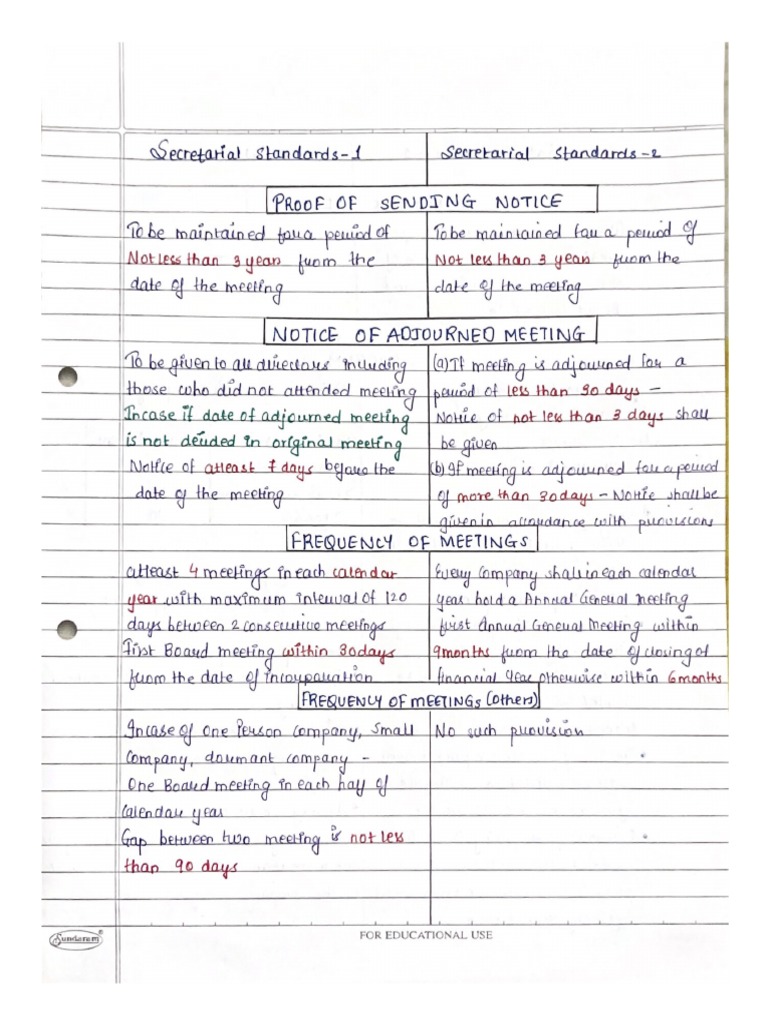 Secretarial Standards-1
Secretarial Standards-2
PROOF OF SENDING NOTICE
To be maintained for a period of
Not less than 3 year from the
date of the meeting
To be maintained for a period of
Not less than 3 year from the
date of the meeting
NOTICE OF ADJOURNED MEETING
To be given to all directors including
those who did not attended meeting
Incase if date of adjourned meeting
is not decided in original meeting
Notice of atleast 7 days before the
date of the meeting
(a) If meeting is adjourned for a
period of less than 30 days -
Notice of not less than 3 days shall
be given
(b) If meeting is adjourned for a period
of more than 30 days - Notice shall be
given in accordance with provisions
FREQUENCY OF MEETINGS
atleast 4 meetings in each calendar
year with maximum interval of 120
days between 2 consecutive meetings
First Board meeting within 30 days
from the date of incorporation
Every Company shall in each calendar
year hold a Annual General meeting
first Annual General Meeting within
9 months from the date of closing of
financial year otherwise within 6 months
FREQUENCY OF MEETINGS (others)
Incase of One Person company, Small
Company, dormant company -
One Board meeting in each half of
Calendar year
Gap between two meeting is not less
than 90 days
No such provision
Sundaram
FOR EDUCATIONAL USE